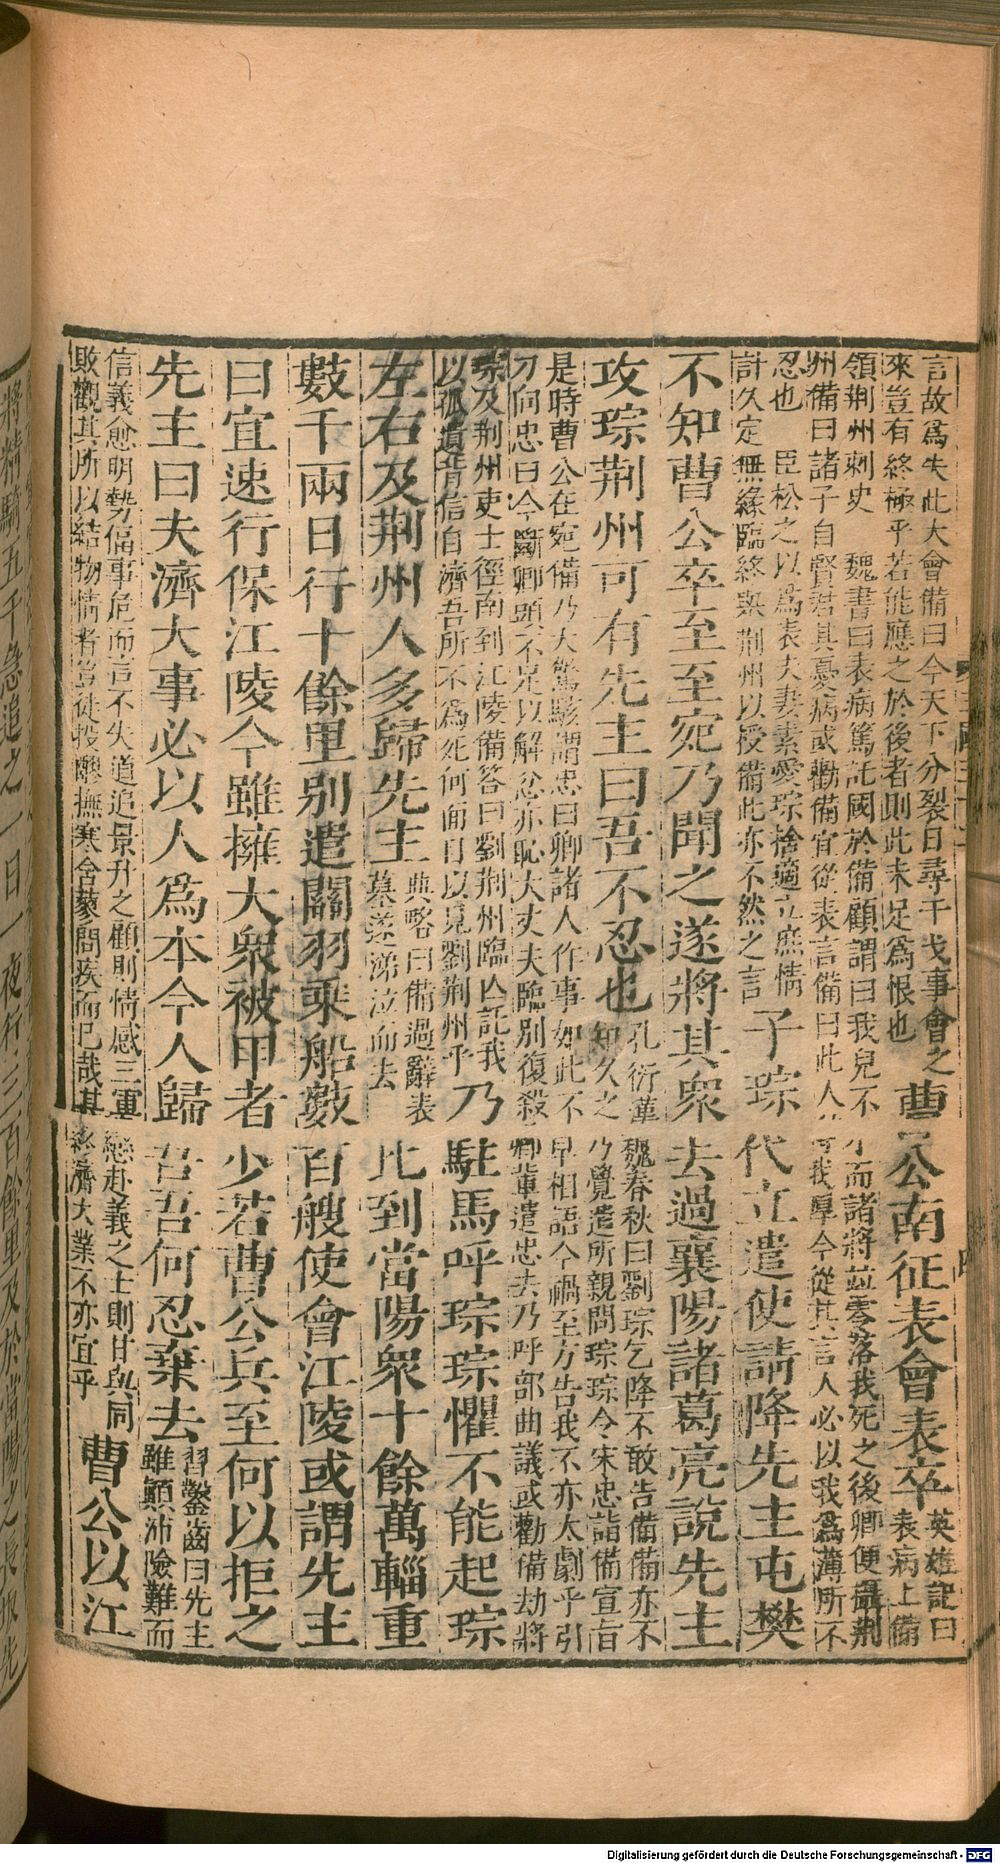 言故爲失此大會備曰今天下分裂日尋干戈事會之
來豈有終極乎若能應之於後者則此未足爲恨也
曹公南征表會表卒
英雄記曰
表病上備
領荆州刺史　魏書曰表病篤託國於備顧謂曰我兒不才而諸將並零落我死之後卿便攝荆
州備曰諸子自賢君其憂病或勸備宜從表言備曰此人待我厚今從其言人必以我爲薄所不
忍也　臣松之以爲表夫妻素愛琮捨適立庶情
計久定無緣臨終舉荆州以授備此亦不然之言
子琮代立遣使請降先主屯樊
不知曹公卒至至宛乃聞之遂將其衆去過襄陽諸葛亮說先主
攻琮荆州可有先主曰吾不忍也
孔衍漢魏春秋曰劉琮乞降不敢告備備亦不
知久之乃覺遣所親問琮琮令宋忠詣備宣旨
是時曹公在宛備乃大驚駭謂忠曰卿諸人作事如此不早相語今禍至方告我不亦太劇乎引
刀向忠曰今斷卿頭不足以解忿亦恥大丈夫臨別復殺卿輩遣忠去乃呼部曲議或勸備劫將
琮及荆州吏士徑南到江陵備答曰劉荆州臨亡託我
以孤遺背信自濟吾所不爲死何面目以見劉荆州乎
乃駐馬呼琮琮懼不能起琮
左右及荆州人多歸先主
典略曰備過辭表
墓遂涕泣而去
比到當陽衆十餘萬輜重
數千兩日行十餘里別遣關羽乘船數百艘使會江陵或謂先主
曰宜速行保江陵今雖擁大衆被甲者少若曹公兵至何以拒之
先主曰夫濟大事必以人爲本今人歸吾吾何忍棄去
習鑿齒曰先主
雖顛沛險難而
信義愈明勢偪事危而言不失道追景升之顧則情感三軍戀赴義之士則甘與同
敗觀其所以結物情者豈徒投醪撫寒含蓼問疾而已哉其終濟大業不亦宜乎
曹公以江
將精騎五千急追之一日一夜行三百餘里及於當陽之長坂先
Digitalisierung gefördert durch die Deutsche Forschungsgemeinschaft - DFG